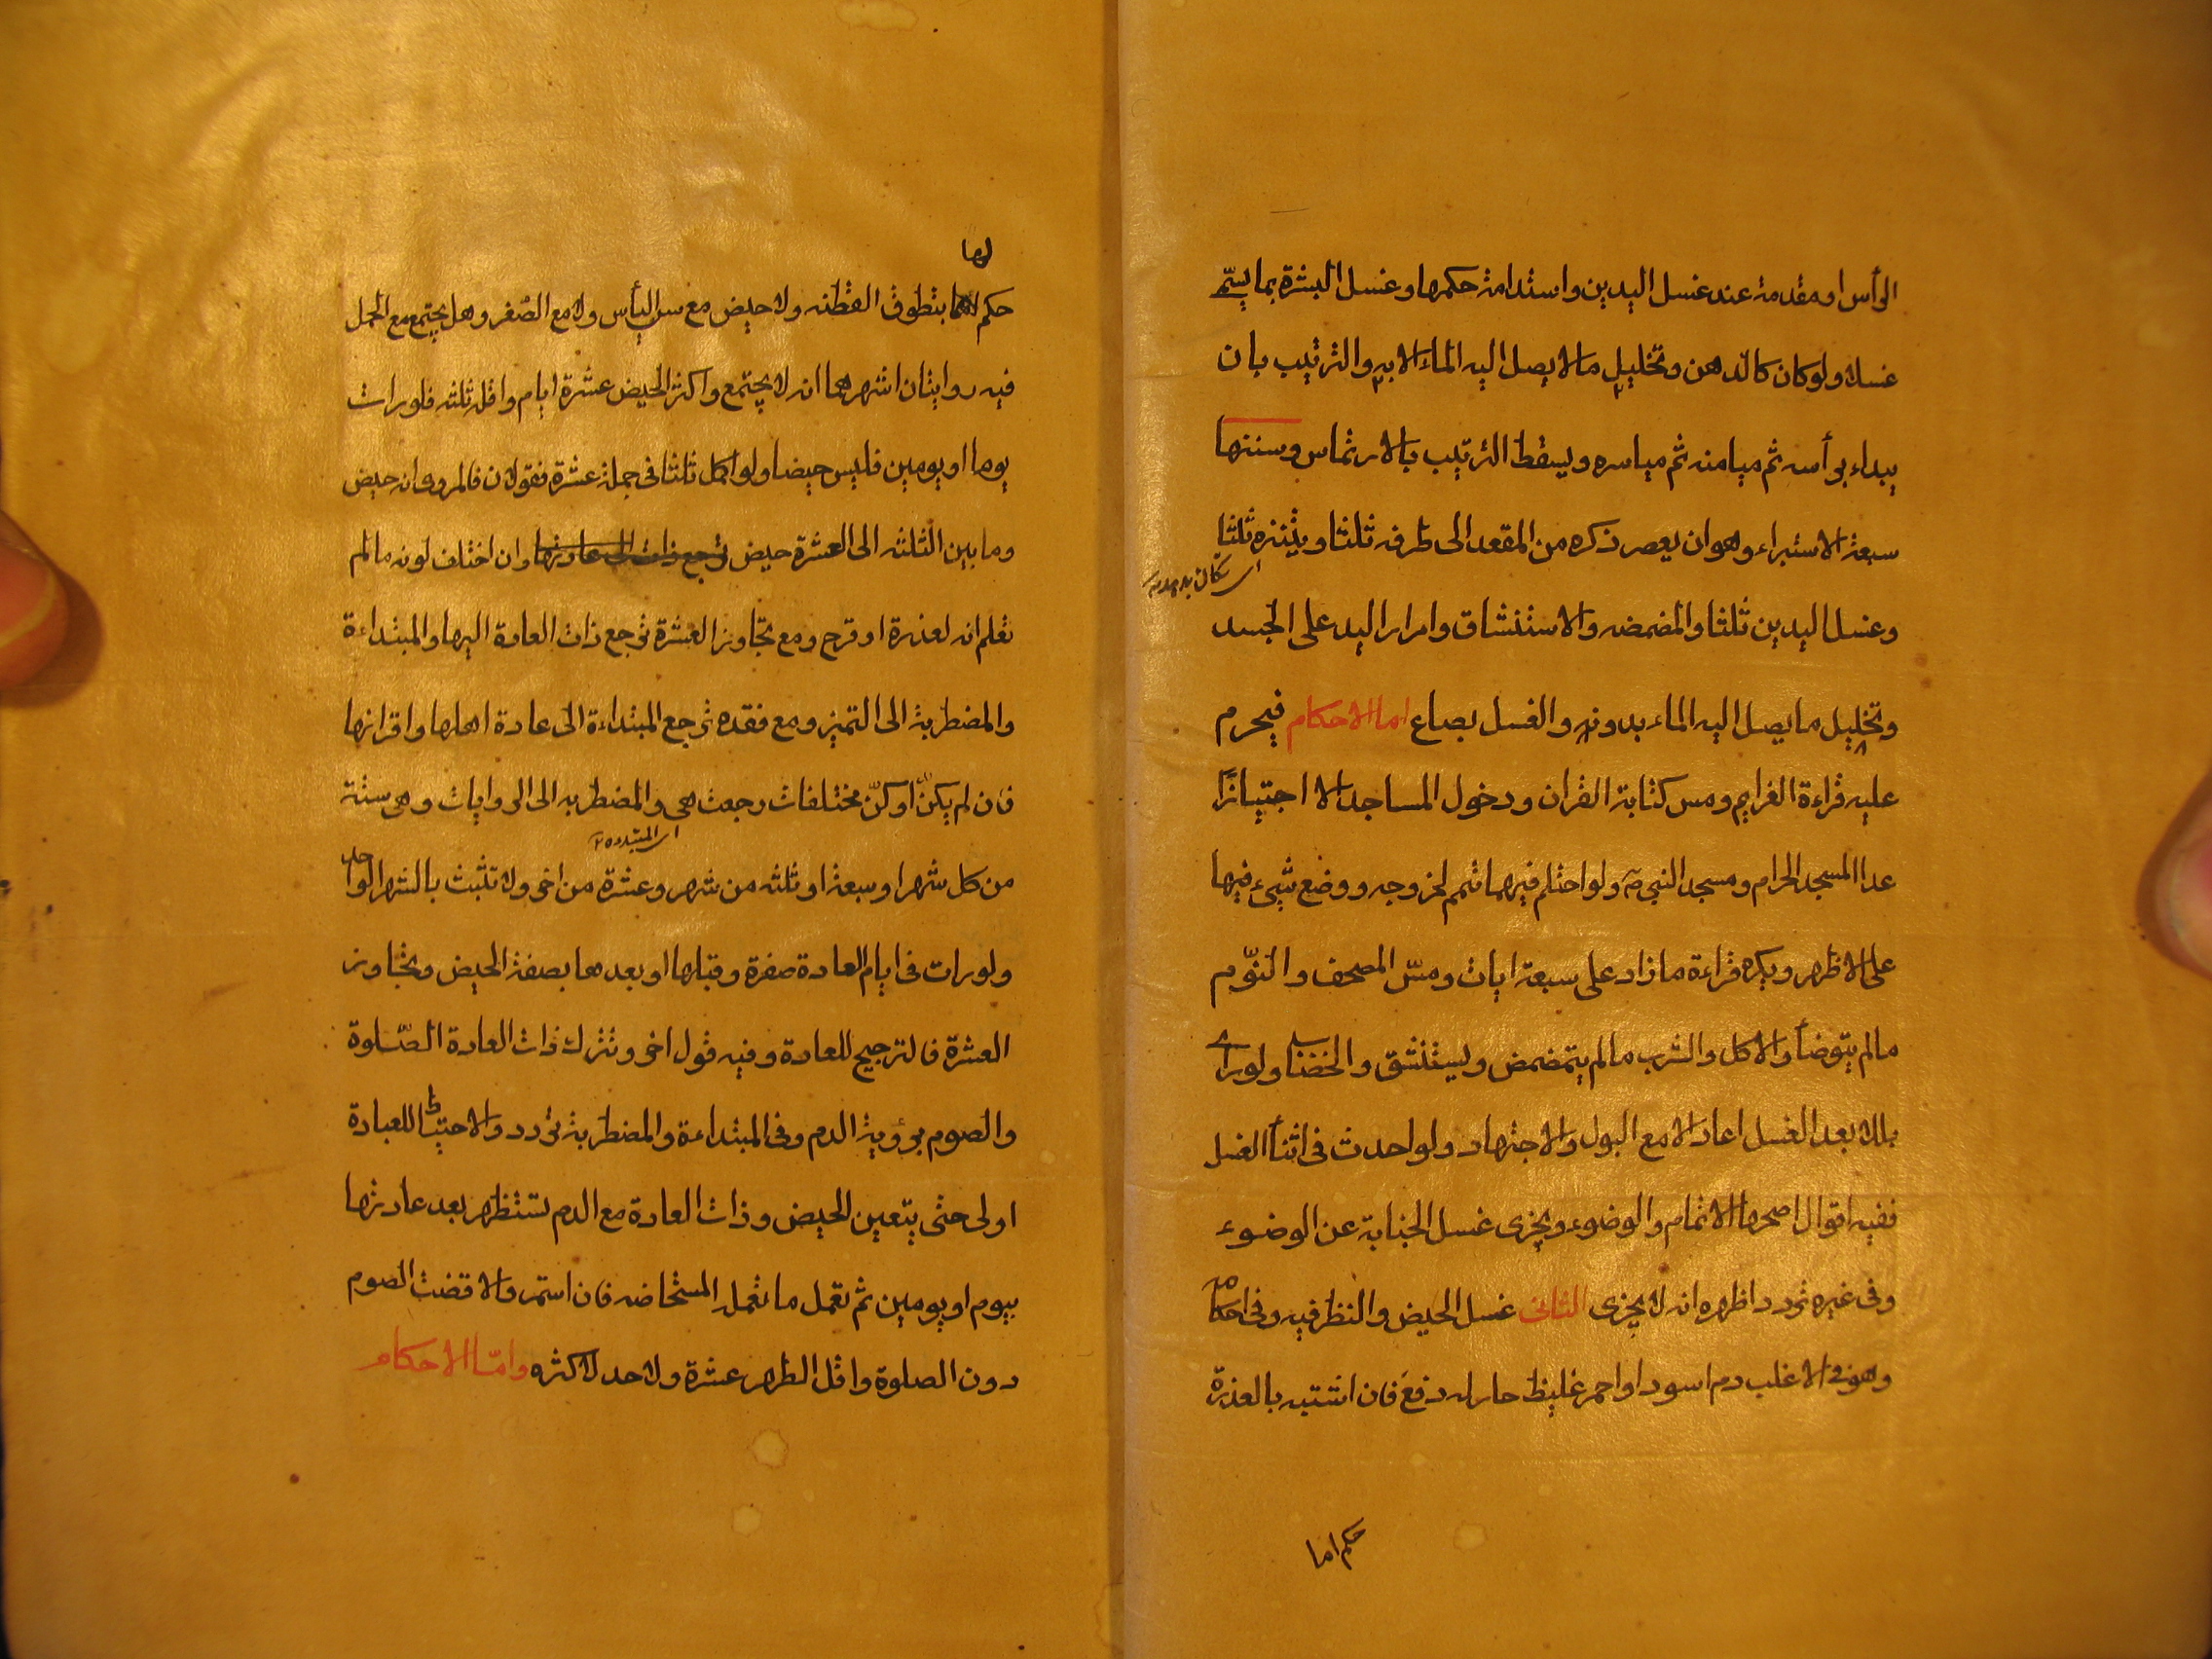 الرأس او مقدمة عند غسل اليدين واستدامة حكمها وغسل البشرة بما يسمّى
غسلا ولو كان كالدهن وتخليل ما لا يصل اليه الماء الا به والترتيب بان
يبداء برأسه ثم ميامنه ثم مياسره ويسقط الترتيب بالارتماس وسننها
سبعة الاستبراء وهو ان يعصر ذكره من المقعد الى طرفه ثلثا وينتره ثلثا
وغسل اليدين ثلثا والمضمضه والاستنشاق وامرار اليد على الجسد
وتخليل ما يصل اليه الماء بدونه والغسل بصاع اما الاحكام فيحرم
عليه قراءة الغرايم ومس كتابة القران ودخول المساجد الا اجتيازًا
عدا المسجد الحرام ومسجد النبي ص ولو احتلم فيهما تيمم لخروجه ووضع شيء فيها
على الاظهر ويكره قراءة ما زاد على سبعة ايات ومسّ المصحف والنوم
مالم يتوضأ والاكل والشرب مالم يتمضمض ويستنشق والخضاب ولو راى
بللا بعد الغسل اعاد الا مع البول والاجتهاد ولو احدث فى اثنأ الغسل
ففيه اقوال اصحها الاتمام والوضوء ويجزى غسل الجنابة عن الوضوء
وفى غيره تردد اظهره انه لا يجزى الثانى غسل الحيض والنظر فيه وفى احكامه
وهو فى الاغلب دم اسود او احمر غليظ حار له دفع فان اشتبه بالعذرة
حكم اما
لها
حكم بتطوق القطنه ولا حيض مع سن اليأس ولا مع الصّغر وهل يجتمع مع الحمل
فيه روايتان اشهرهما انه لا يجتمع واكثر الحيض عشرة ايام واقله ثلثه فلو رات
يوما او يومين فليس حيضا ولو اكمل ثلثا فى جملة عشرة فقولان فالمروى انه حيض
وما بين الثلثه الى العشرة حيض ترجع ذات الى عادتها وان اختلف لونه مالم
تعلم انه لعذرة او قرح ومع تجاوز العشرة ترجع ذات العادة اليها والمبتداءة
والمضطربة الى التميز ومع فقده ترجع المبتداءة الى عادة اهلها واقرانها
فان لم يكنّ او كنّ مختلفات رجعت هى والمضطربه الى الروايات وهى ستة
اى المبتدءه
من كل شهر او سبعة او ثلثه من شهر وعشرة من اخر ولا تثبت بالشهر الواحد
ولو رات فى ايام العادة صفرة وقبلها او بعدها بصفة الحيض وتجاوز
العشرة فالترجيح للعادة وفيه قول اخر وتترك ذات العادة الصّلوة
والصوم برؤية الدم وفى المبتداءة والمضطربة تردد والاحتياط للعبادة
اولى حتى يتعين الحيض وذات العادة مع الدم تستظهر بعد عادتها
بيوم او يومين ثم تعمل ما تعمله المستحاضه فان استمر والا قضت الصوم
دون الصلوة واقل الطهر عشرة ولا حد لاكثره وامّا الاحكام